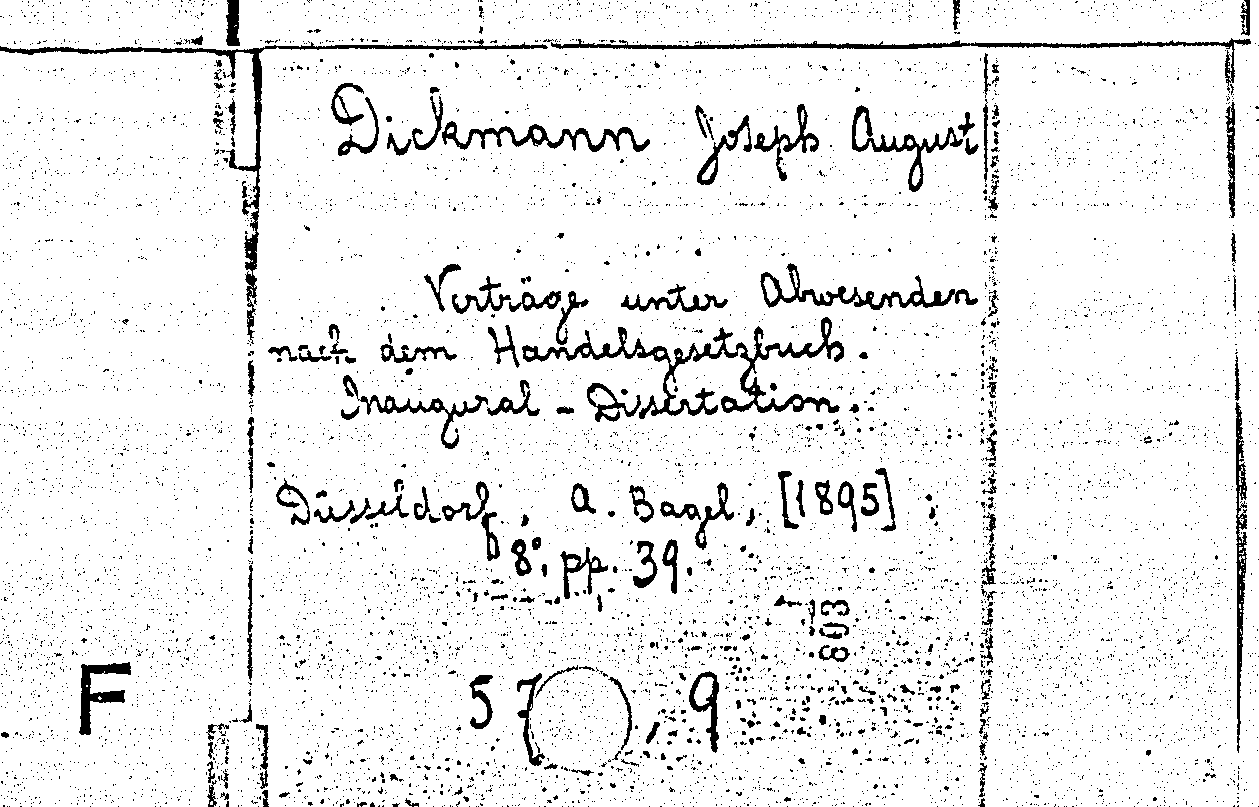 Dickmann Joseph August
Verträge unter Abwesenden
nach dem Handelsgesetzbuch.
Inaugural - Dissertation.
Düsseldorf, A. Bagel, [1895];
8°, pp. 39.
803
F
57 , 9